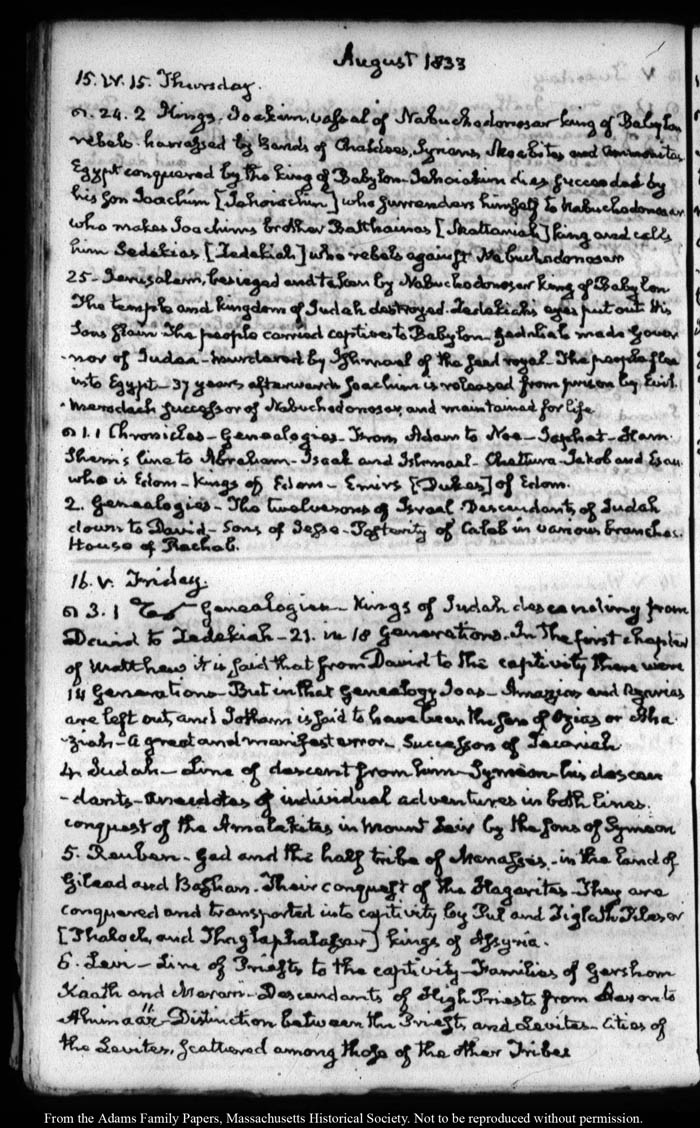 August 1833
15. IV. 15. Thursday.
24. 2 Kings. Joakim, vassal of Nabuchodonosar king of Babylon
rebels. harrassed by bands of Chaldees, Syrians, Moabites and Ammonites
Egypt conquered by the king of Babylon. Jehoiakim dies succeeded by
his son Joachim [Jehoiachin] who surrenders himself to Nabuchodonosar
who makes Joachims brother Batthanias [Mattaniah] king and calls
him Sedekias [Zedekiah] who rebels against Nabuchodonosar
25— Jerusalem, besieged and taken by Nabuchodonosar king of Babylon
The temple and kingdom of Judah destroyed. Zedekiah's eyes put out His
Sons slain The people carried captives to Babylon— Gedaliah made Gover
-nor of Judea— murdered by Ishmael of the seed royal— The people flee
into Egypt— 37 years afterwards Joachim is released from prison by Evil.
-merodach successor of Nabuchodonosar, and maintained for life.
1.1 Chronicles— Genealogies— From Adam to Noe— Japhet— Ham
Shem's line to Abraham— Isaak and Ishmael— Chettura— Jakob and Esau
who is Edom— Kings of Edom— Emirs [Dukes] of Edom.
2. Genealogies— The twelve sons of Israel. Descendants of Judah
down to David— Sons of Jesse— Posterity of Caleb in various branches.
House of Rechab.
16. V. Friday.
3. 1 Genealogies— Kings of Judah descending from
David to Zedekiah— 21. in 18 Generations. In the first chapter
of Matthew it is said that from David to the captivity there were
14 Generations— But in that Genealogy Joas— Amazias and Azarias
are left out, and Jotham is said to have been the son of Ozias or Aha
-ziah— a great and manifest error. Successors of Jecaniah
4. Judah— Line of descent from him— Symeon his descen
-dants— anecdotes of individual adventures in both lines.
conquest of the Amalekites in Mount Seir by the sons of Symeon
5. Reuben— Gad and the half tribe of Manasses— in the land of
Gilead and Bashan. Their conquest of the Hagarites— They are
conquered and transported into captivity by Pul and Tiglath Pileser
[Phaloch, and Thaglaphalasar] kings of Assyria.
6. Levi— Line of Priests to the captivity— Families of Gershom
Kaath and Merari— Descendants of High Priests from Aaron to
Ahimaaz— Distinction between the Priests and Levites— Cities of
the Levites, scattered among those of the other Tribes
From the Adams Family Papers, Massachusetts Historical Society. Not to be reproduced without permission.